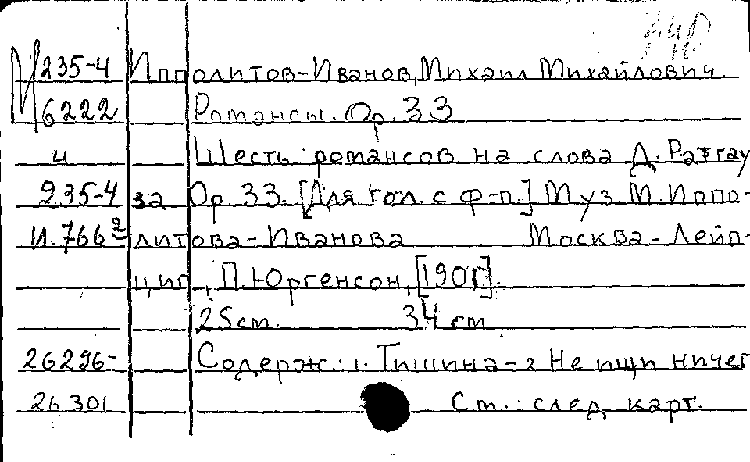 М 235-4 Ипполитов-Иванов, Михаил Михайлович.
6222 Романсы. Ор. 33
и Шесть романсов на слова Д. Ратгау
235-4 за Ор 33. [Для гол. с ф-п.] Муз М. Иппо-
И.766 2 литова-Иванова Москва-Лейп-
циг, П. Юргенсон, [190г].
25 ст. 34 см
26296- Содерж.: 1. Тишина-2 Не ищи ничег
26301 См. след. карт.